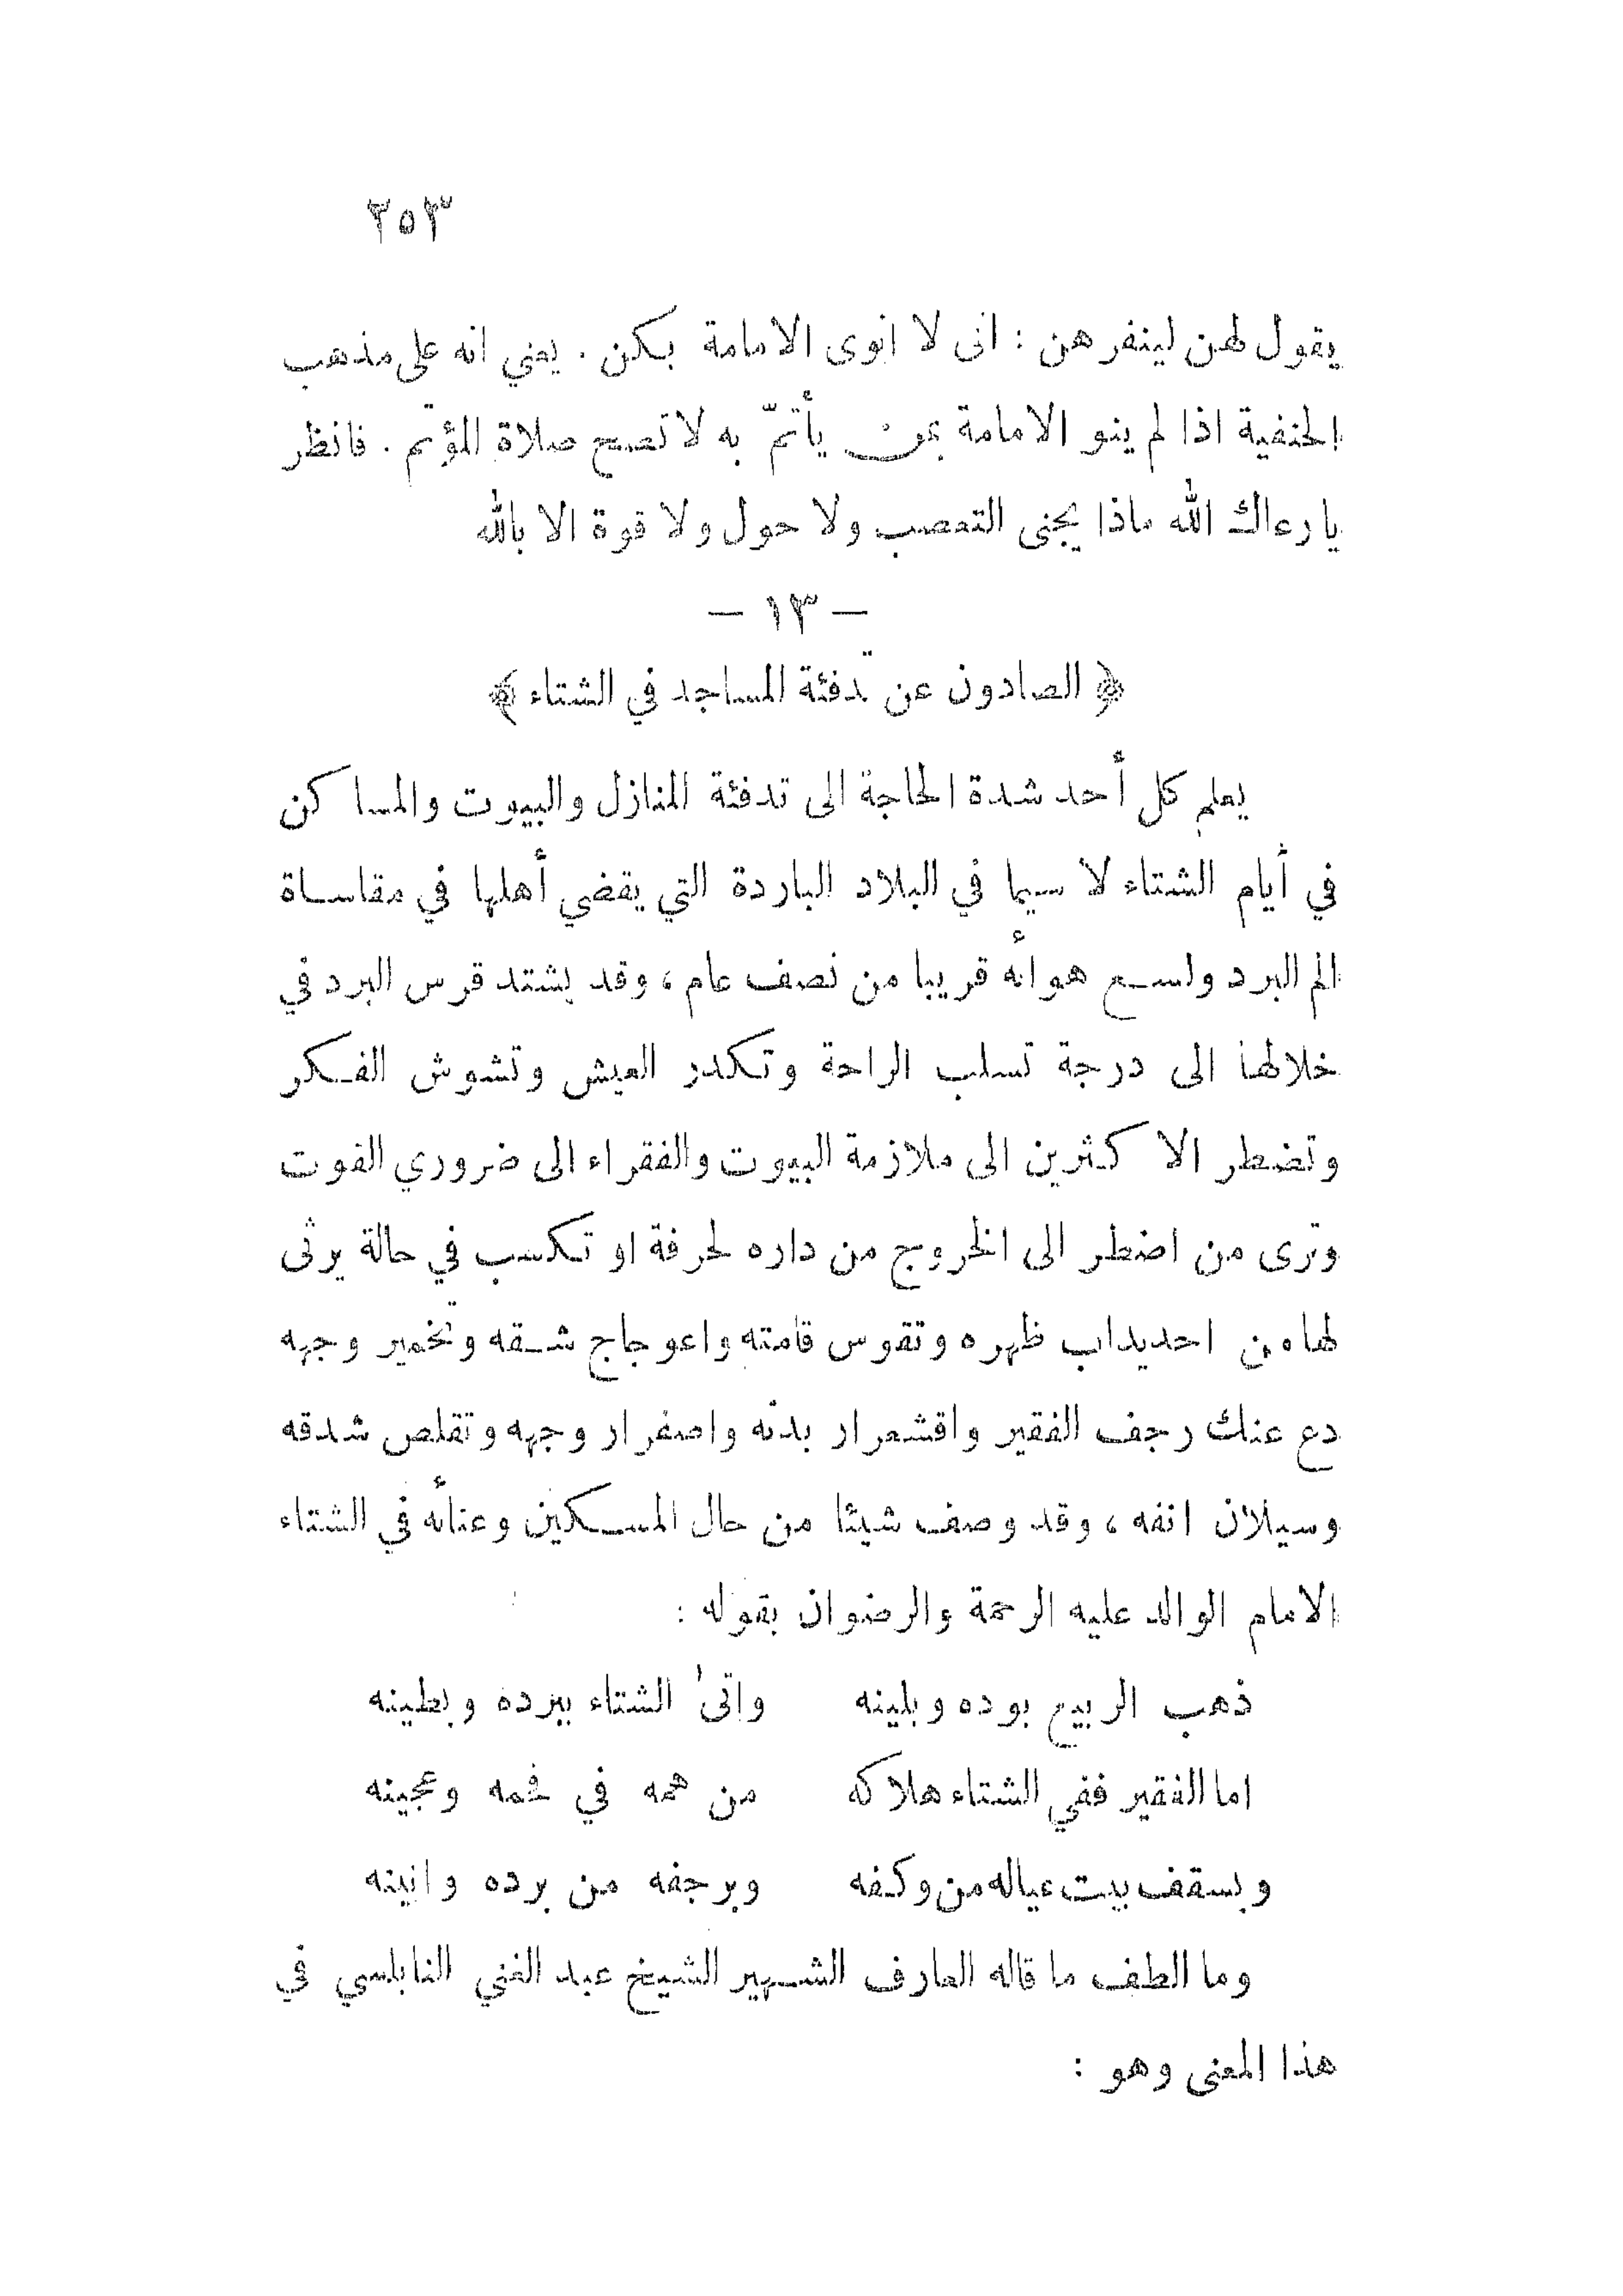 ٢٥٣
يقول لهن لينفرهن : انى لا انوى الامامة بكن . يعني انه على مذهب
الحنفية اذا لم ينو الامامة بمن يأتمّ به لا تصح صلاة المؤتمّ . فانظر
يا رعاك الله ماذا يجنى التعصب ولا حول ولا قوة الا بالله
— ١٣ —
﴿ الصادون عن تدفئة المساجد في الشتاء ﴾
يعلم كل أحد شدة الحاجة الى تدفئة المنازل والبيوت والمساكن
في أيام الشتاء لا سيما في البلاد الباردة التي يقضي أهلها في مقاساة
الم البرد ولسع هوائه قريبا من نصف عام ، وقد يشتد قرس البرد في
خلالها الى درجة تسلب الراحة وتكدر العيش وتشوش الفكر
وتضطر الاكثرين الى ملازمة البيوت والفقراء الى ضروري القوت
وترى من اضطر الى الخروج من داره لحرفة او تكسب في حالة يرثى
لها من احديداب ظهره وتقوس قامته واعوجاج شقه وتخمير وجهه
دع عنك رجف الفقير واقشعرار بدنه واصفرار وجهه وتقلص شدقه
وسيلان انفه ، وقد وصف شيئا من حال المسكين وعنائه في الشتاء
الامام الوالد عليه الرحمة والرضوان بقوله :
ذهب الربيع بوده وبلينه واتى الشتاء ببرده وبطينه
اما الفقير ففي الشتاء هلاكه من همه في فحمه وعجينه
وبسقف بيت عياله من وكفه وبرجفه من برده وانينه
وما الطف ما قاله العارف الشهير الشيخ عبد الغني النابلسي في
هذا المعنى وهو :